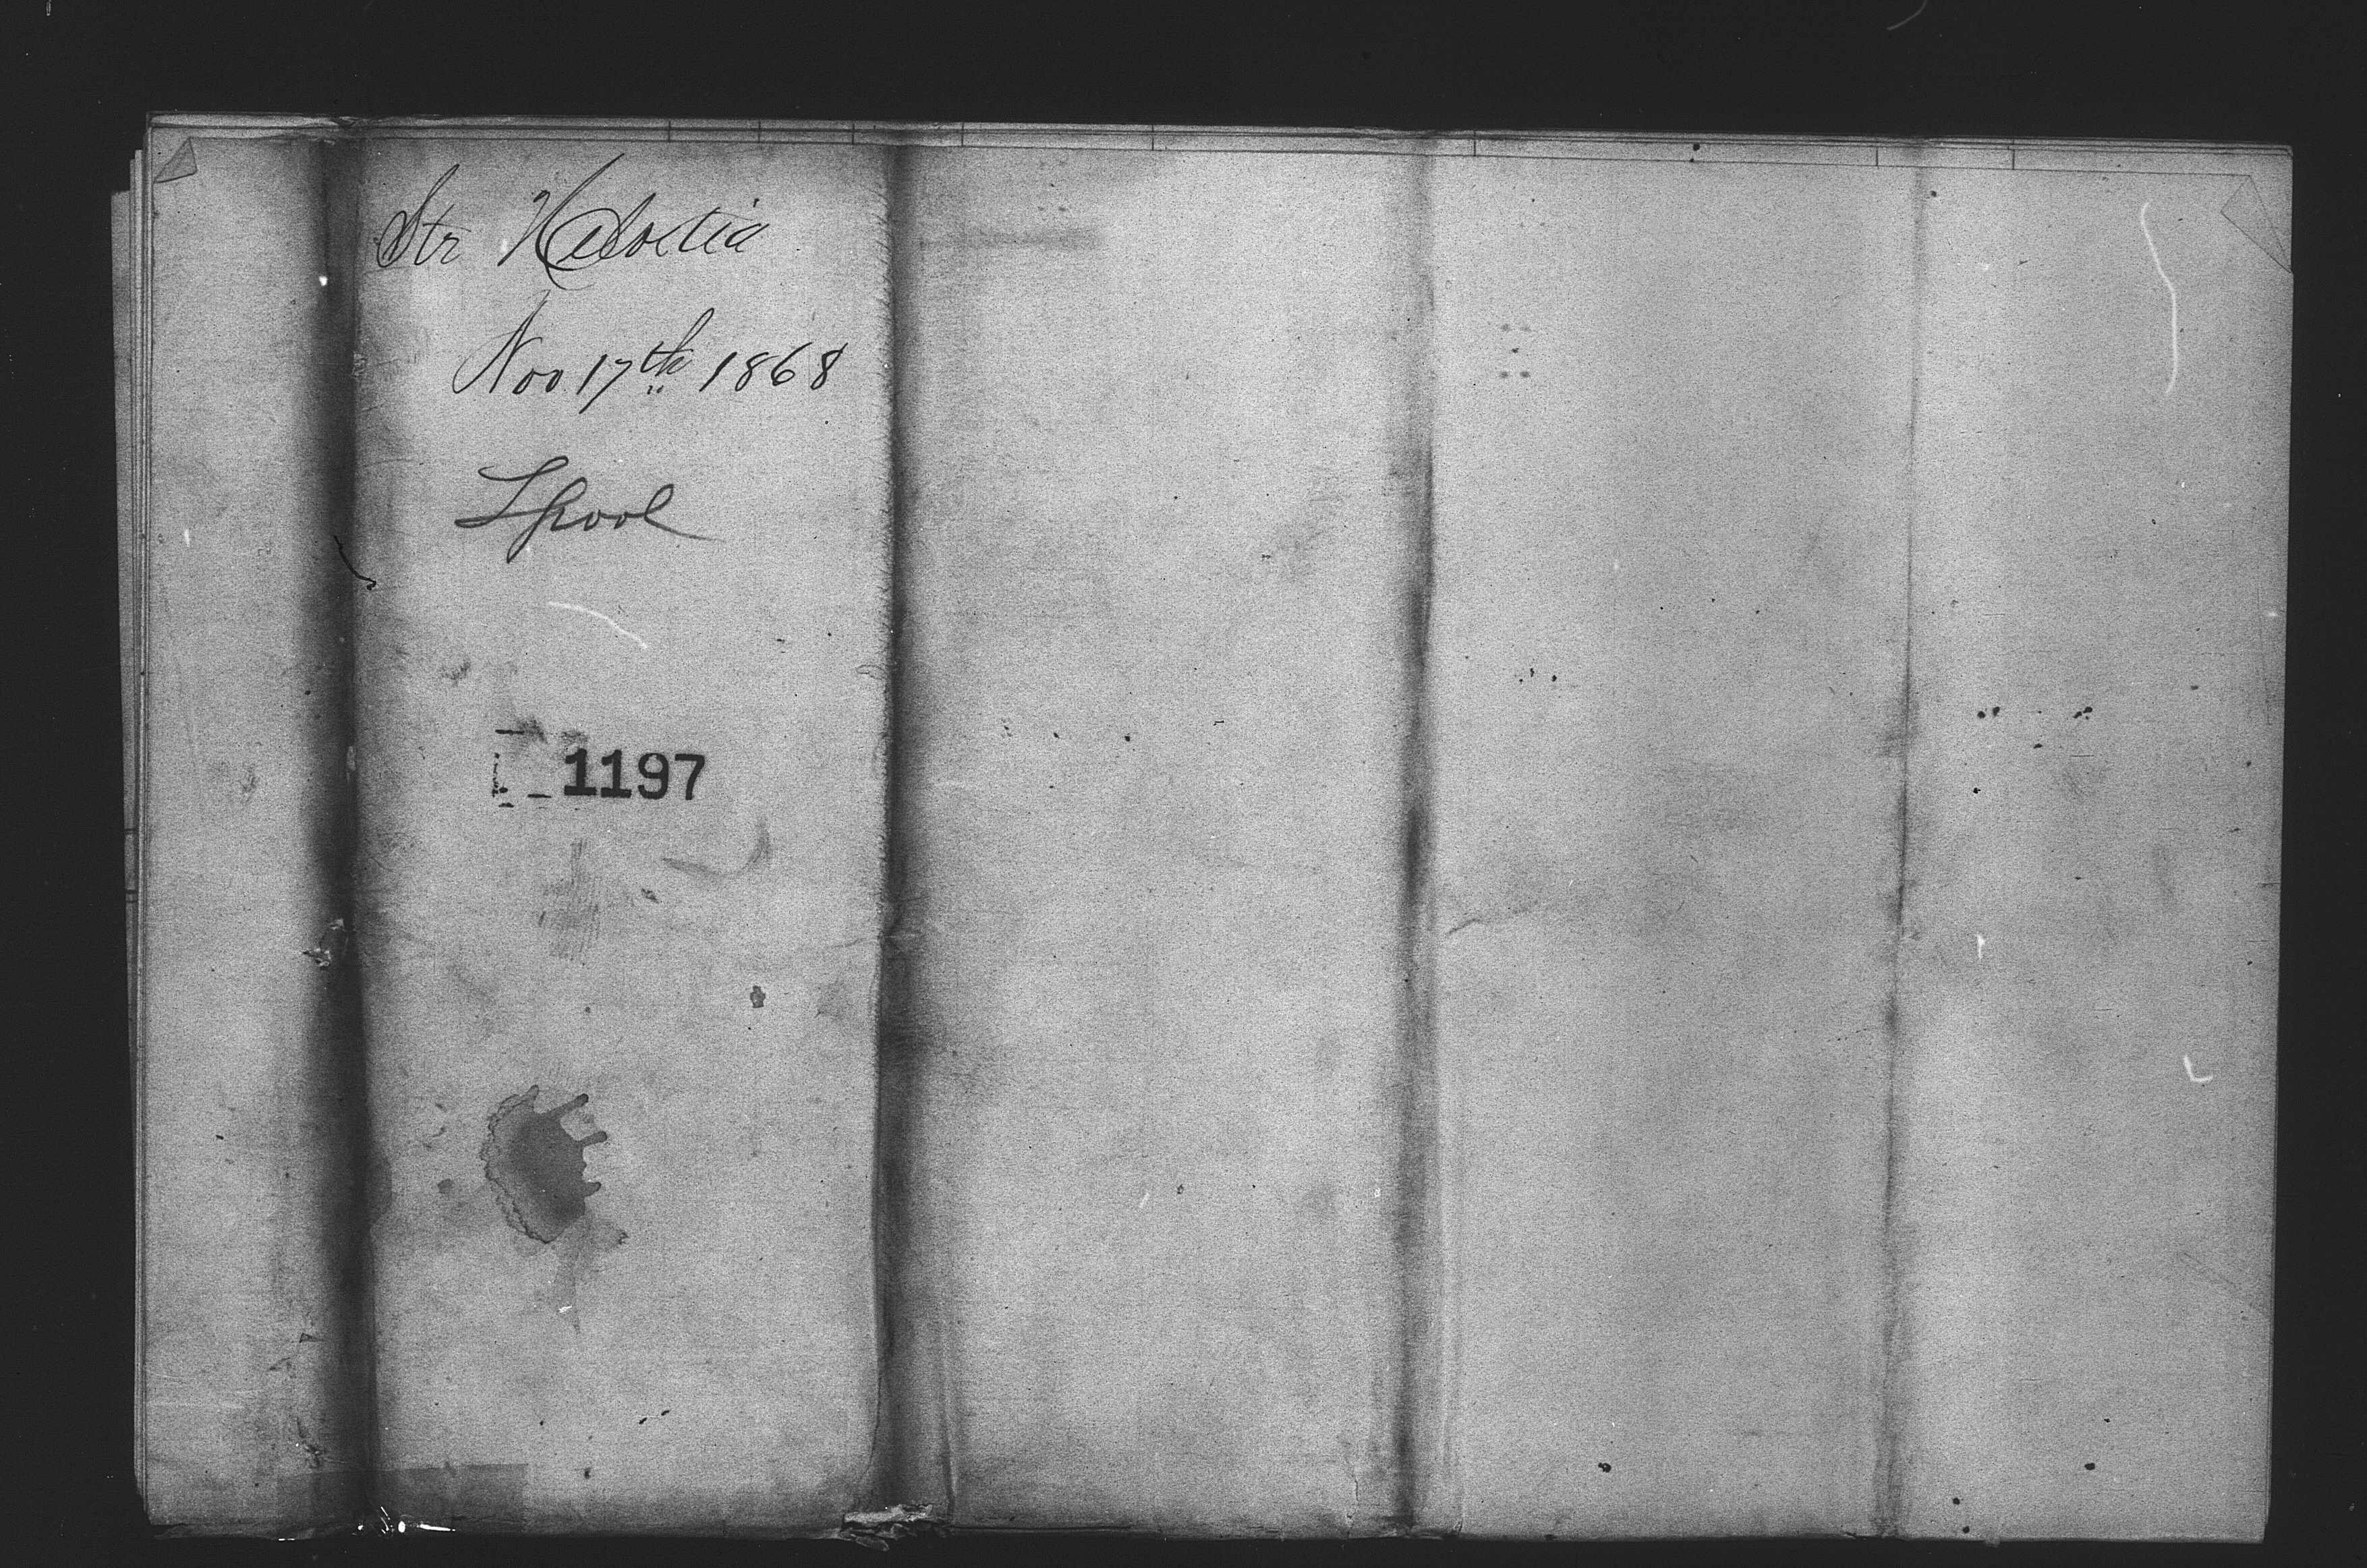 Str Helvetia
Nov 17th 1868
Lpool
1197